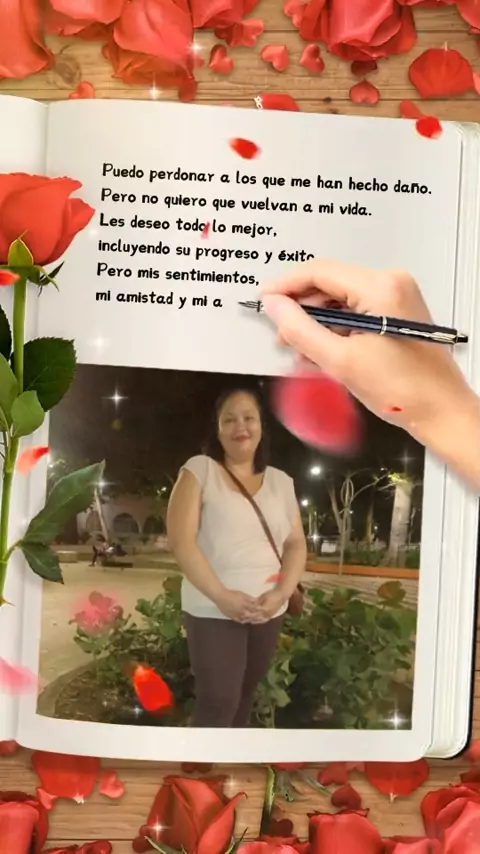 Puedo perdonar a los que me han hecho daño.
Pero no quiero que vuelvan a mi vida.
Les deseo todo lo mejor,
incluyendo su progreso y éxito
Pero mis sentimientos,
mi amistad y mi a